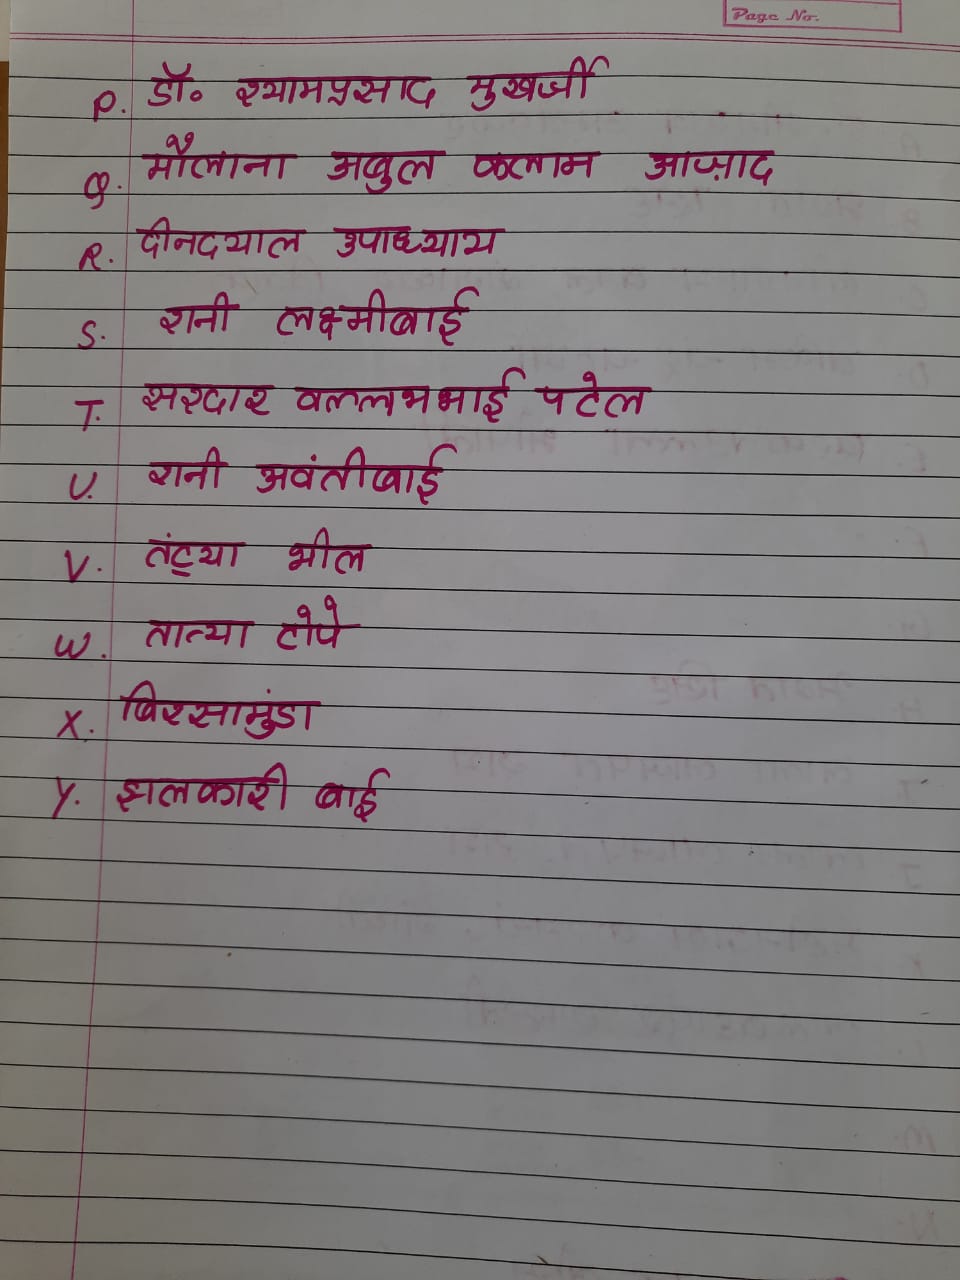 Page No.
P. डॉ. श्यामप्रसाद मुखर्जी
Q. मौलाना अबुल कलाम आज़ाद
R. दीनदयाल उपाध्याय
S. रानी लक्ष्मीबाई
T. सरदार वल्लभभाई पटेल
U. रानी अवंतीबाई
V. तंट्या भील
W. तात्या टोपे
X. बिरसामुंडा
Y. झलकारी बाई